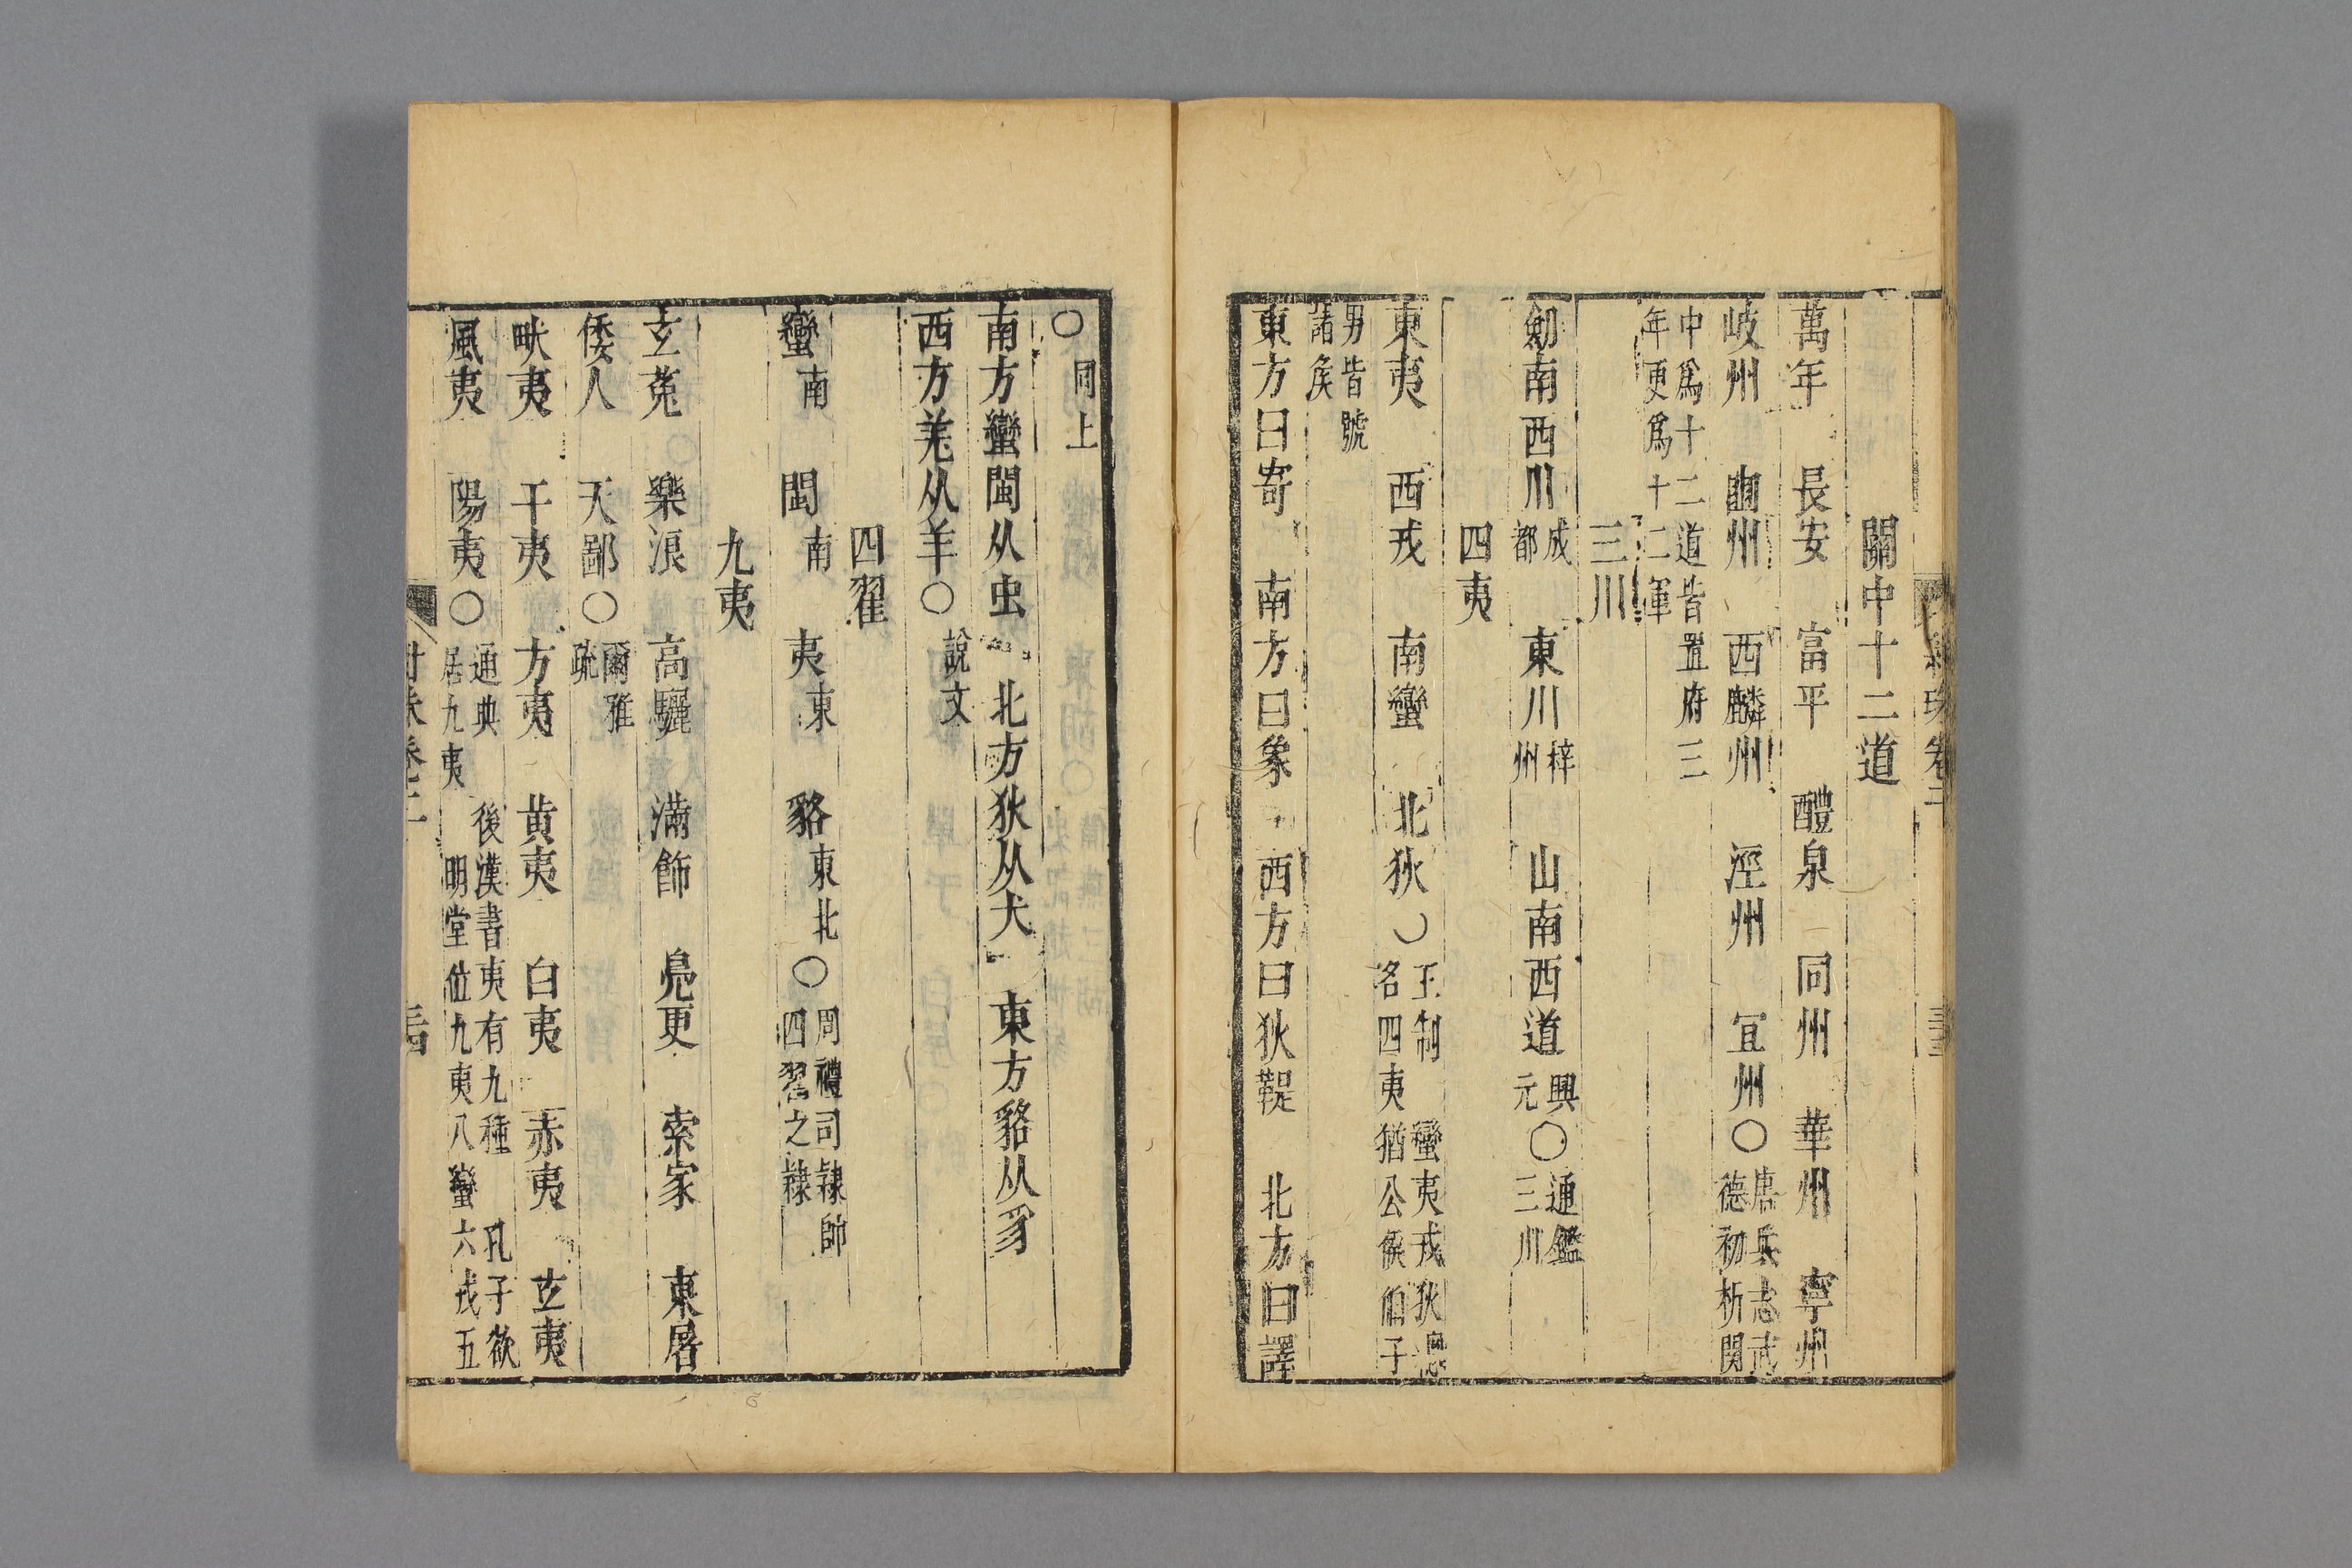 關中十二道
萬年　長安　富平　醴泉　同州　華州　寧州
岐州　豳州　西麟州　涇州　宜州〇唐兵志武德初析関
中爲十二道皆置府三年更爲十二軍
三川
劒南西川成都　東川梓州　山南西道興元〇通鑑三川
四夷
東夷　西戎　南蠻　北狄〇王制　蠻夷戎狄　名四夷猶公侯伯子
男皆號諸矦
東方曰寄　南方曰象　西方曰狄鞮　北方曰譯
〇同上
南方蠻閩从虫　北方狄从犬　東方貉从豸
西方羌从羊〇說文
四翟
蠻南　閩南　夷東　貉東北〇周禮司隷帥四翟之隷
九夷
玄菟　樂浪　高驪　滿飾　鳧更　索家　東屠
倭人　天鄙〇爾雅疏
畎夷　干夷　方夷　黄夷　白夷　赤夷　玄夷
風夷　陽夷〇通典　後漢書夷有九種　孔子欲居九夷　明堂位九夷八蠻六戎五